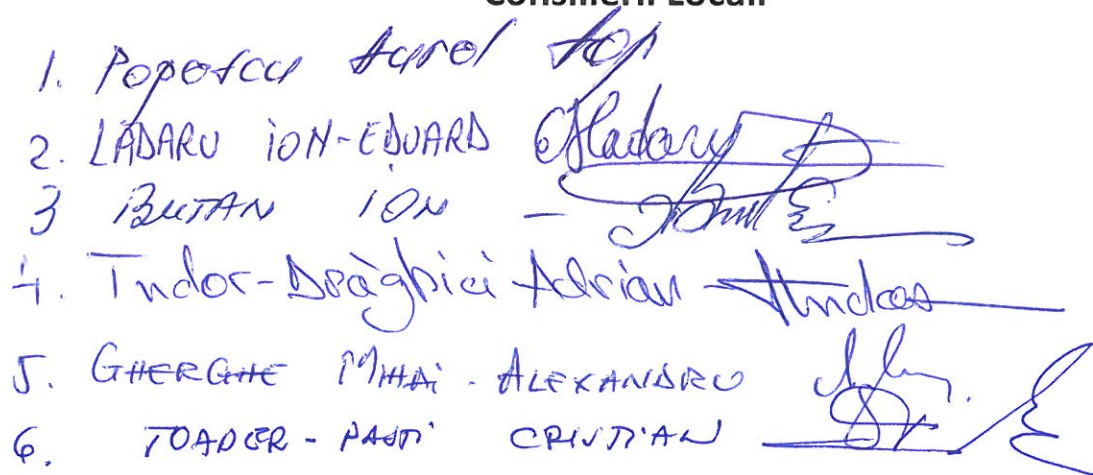 Consilierii Locali
1. Popescu Aurel
2. LĂDARU ION-EDUARD
3 BUTAN ION -
4. Tudor-Drăghici Adrian
5. GHERGHE MIHAI - ALEXANDRU
6. TOADER - PASTI CRISTIAN